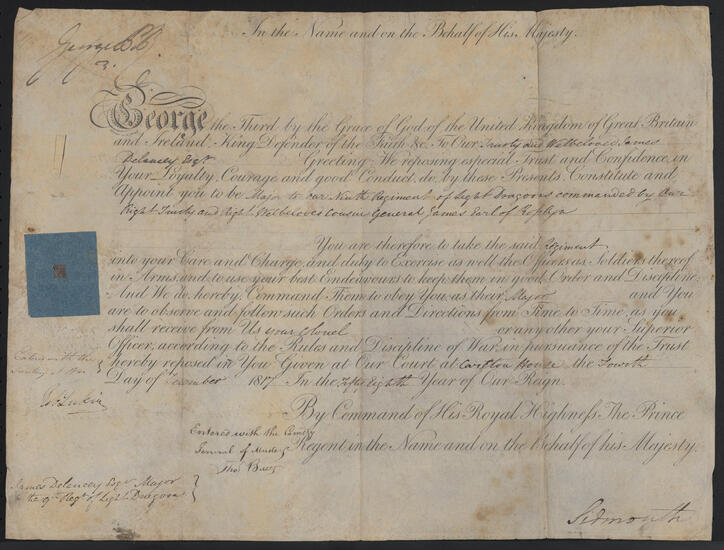 George P R
In the Name and on the Behalf of His Majesty.
George the Third by the Grace of God, of the United Kingdom of Great Britain
and Ireland, King, Defender of the Faith &c. To Our Trusty and Welbeloved James
Delancey Esqr Greeting: We reposing especial Trust and Confidence in
Your Loyalty, Courage and good Conduct, do, by these Presents, Constitute and
Appoint you to be Major to our Ninth Regiment of Light Dragoons commanded by Our
Right Trusty and Right Welbeloved Cousin General James Earl of Rosslyn
You are therefore to take the said Regiment
into your Care and Charge, and duly to Exercise as well the Officers as Soldiers thereof
in Arms, and to use your best Endeavours to keep them in good Order and Discipline
And We do hereby Command Them to obey You as their Major and You
are to observe and follow such Orders and Directions from Time to Time as you
shall receive from Us your Colonel or any other your Superior
Officer, according to the Rules and Discipline of War, in pursuance of the Trust
hereby reposed in You Given at Our Court at Carlton House the Fourth
Day of December 1817 In the Fifty Eighth Year of Our Reign.
By Command of His Royal Highness The Prince
Regent in the Name and on the Behalf of his Majesty.
Entered with the
Secretary at War
Entered with the Comy
General of Musters
James Delancey Esqr Major
the 9th Regt of Light Dragoons
Sidmouth